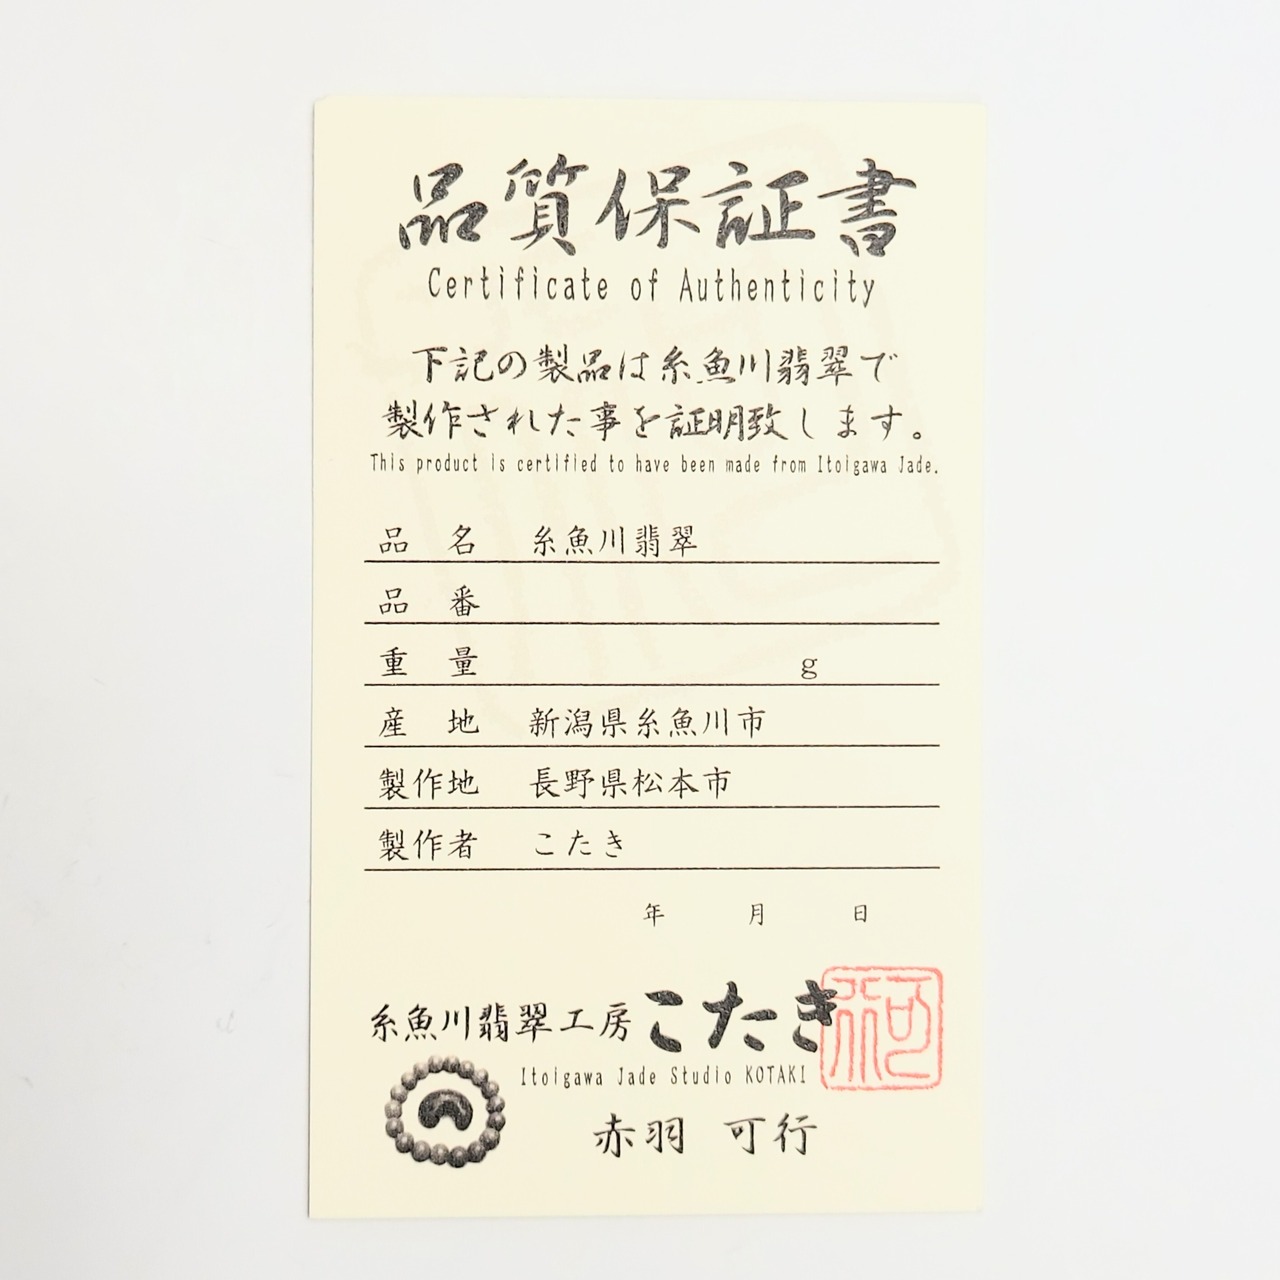 品質保証書
Certificate of Authenticity
下記の製品は糸魚川翡翠で
製作された事を証明致します。
This product is certified to have been made from Itoigawa Jade.
品　名　糸魚川翡翠
品　番
重　量　g
産　地　新潟県糸魚川市
製作地　長野県松本市
製作者　こたき
年　月　日
糸魚川翡翠工房こたき
Itoigawa Jade Studio KOTAKI
赤羽　可行